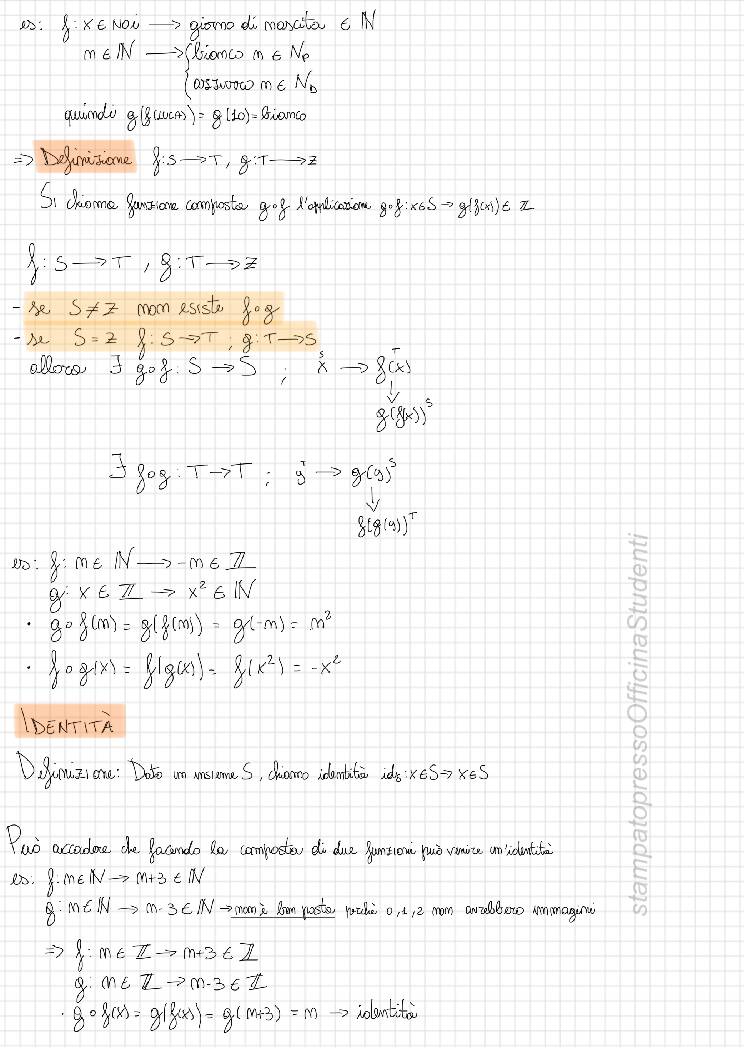 es: f: x ∈ Noi → giorno di nascita ∈ ℕ
m ∈ ℕ → { bianco m ∈ Np
azzurro m ∈ ND
quindi g(f(LUCA)) = g(10) = bianco
=> Definizione f: S → T, g: T → Z
Si chiama funzione composta g∘f l'applicazione g∘f: x∈S → g(f(x)) ∈ Z
f: S → T , g: T → Z
- se S ≠ Z non esiste f∘g
- se S = Z f: S → T ; g: T → S
allora ∃ g∘f: S → S ; x^S → f(x)^T
↓
g(f(x))^S
∃ f∘g: T → T ; y^T → g(y)^S
↓
f(g(y))^T
es: f: m ∈ ℕ → -m ∈ ℤ
g: x ∈ ℤ → x² ∈ ℕ
· g∘f(m) = g(f(m)) = g(-m) = m²
· f∘g(x) = f(g(x)) = f(x²) = -x²
IDENTITÀ
Definizione: Dato un insieme S, chiamo identità ids: x∈S → x∈S
Può accadere che facendo la composta di due funzioni può venire un'identità
es: f: m∈ℕ → m+3 ∈ ℕ
g: m∈ℕ → m-3 ∈ ℕ → non è ben posta perchè 0,1,2 non avrebbero immagini
=> f: m ∈ ℤ → m+3 ∈ ℤ
g: m ∈ ℤ → m-3 ∈ ℤ
· g∘f(x) = g(f(x)) = g(m+3) = m → identità
stampatopressoOfficinaStudenti